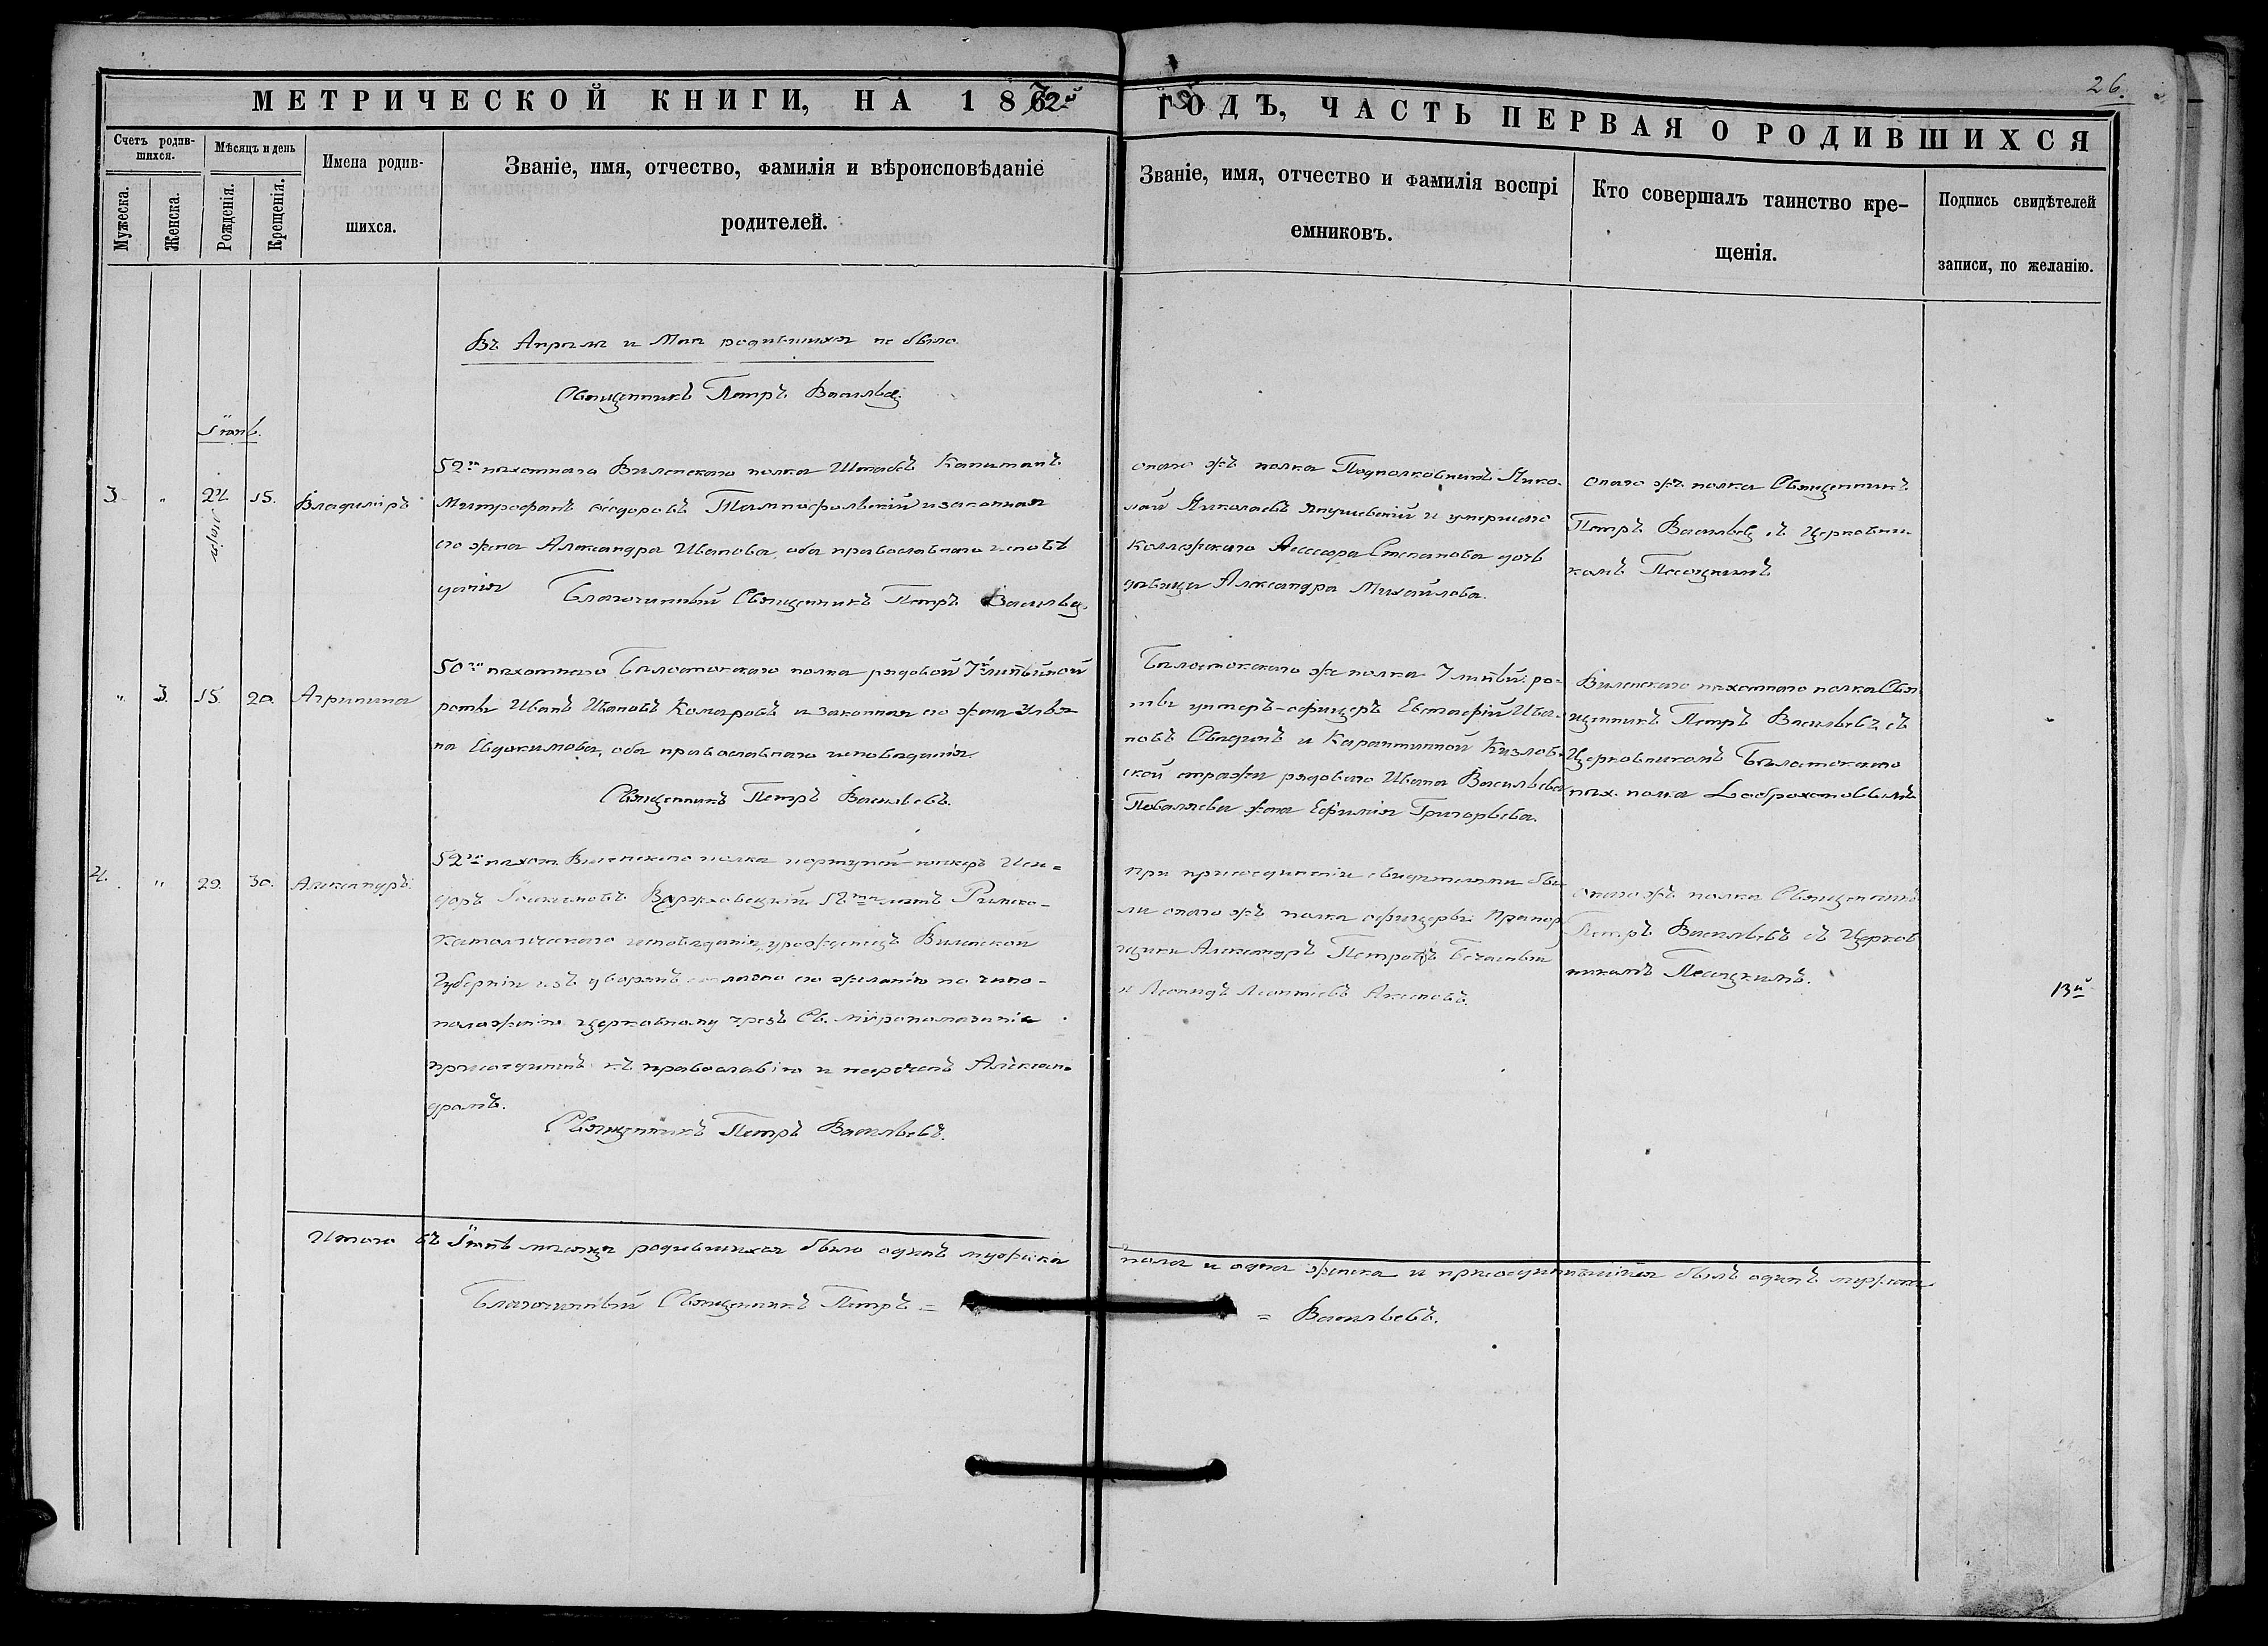 26.
МЕТРИЧЕСКОЙ КНИГИ, НА 1872й ГОДЪ, ЧАСТЬ ПЕРВАЯ О РОДИВШИХСЯ
Счетъ родив-
шихся.
Мужеска.
Женска.
Мѣсяцъ и день
Рожденія.
Крещенія.
Имена родив-
шихся.
Званіе, имя, отчество, фамилія и вѣроисповѣданіе
родителей.
Званіе, имя, отчество и фамилія воспрі
емниковъ.
Кто совершалъ таинство кре-
щенія.
Подпись свидѣтелей
записи, по желанію.
Въ Апрѣлѣ и Маѣ родившихся не было
Священникъ Петръ Васильевъ
Іюнь.
3. " 24 Марта 15. Владиміръ
52го пѣхотнаго Виленскаго полка Штабсъ Капитанъ
Митрофанъ Ѳедоровъ и законная
его жена Александра Иванова, оба православнаго исповѣ
данія Благочинный Священникъ Петръ Васильевъ.
онаго жъ полка Подполковникъ Нико-
лай Николаевъ и умершаго
Коллежскаго Ассесора Степанова дочь
дѣвица Александра Михайлова.
онаго жъ полка Священникъ
Петръ Васильевъ съ Церковни-
комъ Песоцкимъ
" 3. 15 20. Агрипина
50го пѣхотнаго Бѣлостокскаго полка рядовой 7й линѣйной
роты Иванъ Ивановъ Комаровъ и законная его жена Улья
на Евдокимова, оба православнаго исповѣданія.
Священникъ Петръ Васильевъ.
Бѣлостокскаго же полка 7 линѣй. ро-
ты унтеръ-офицеръ Евстафій Ива-
новъ и Карантинной
ской стражи рядоваго Ивана Васильева
жена Ефимія Григорьева.
Виленскаго пѣхотнаго полка Свя
щенникъ Петръ Васильевъ, съ
Церковникомъ Бѣлостокскаго
пѣх. полка
4. " 29. 30. Александръ.
52го пѣхот. Виленскаго полка портупей-юнкеръ Иси-
доръ лѣтъ Римско-
Католическаго исповѣданія, урожденецъ Виленской
Губерніи изъ дворянъ согласно его желанію по чино-
положенію церковному чрезъ Св. мѵропомазаніе
присоединенъ къ православію и нареченъ Алексан-
дромъ.
Священникъ Петръ Васильевъ.
при присоединеніи свидѣтелями бы-
ли онаго жъ полка офицеры: Прапор
щики Александръ Петровъ
и Леонидъ Леонтьевъ
онаго жъ полка Священникъ
Петръ Васильевъ съ Церков
никомъ Песоцкимъ.
13й
Итого въ Іюнѣ мѣсяцѣ родившихся было одинъ мужска пола и одна женска и присоединившійся былъ одинъ мужска
Благочинный Священникъ Петръ = = Васильевъ.